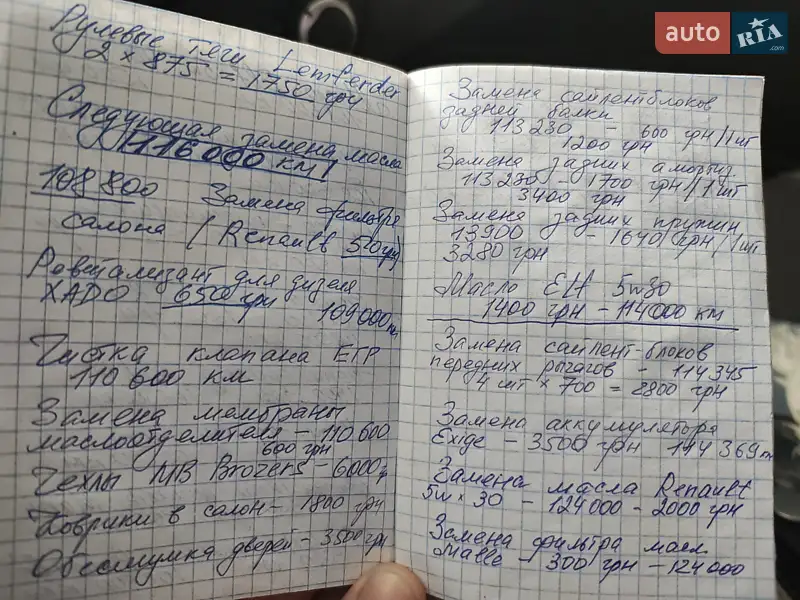 auto RIA .com
Рулевые тяги Lemferder
2 × 875 = 1750 грн
Следующая замена масла
116000 км!
108 800 Замена фильтра
салона (Renault 510грн)
Ревитализант для дизеля
XADO 650 грн 109000
Чистка клапана ЕГР
110 600 км
Замена мембраны
маслоотделителя - 110600
600 грн
Чехлы MB Brozers - 6000 г
Коврики в салон - 1800 грн
Обесшумка дверей - 3500 грн
Замена сайлентблоков
задней балки
113230 - 600 грн/1шт
1200 грн
Замена задних амортиз.
113230 - 1700 грн/1шт
3400 грн
Замена задних пружин
13900 - 1640 грн/1шт
3280 грн
Масло 5w30
1400 грн - 114000 км
Замена сайлент-блоков
передних рычагов - 114345
4 шт × 700 = 2800 грн
Замена аккумулятора
Exide - 3500 грн 114 369
Замена масла Renault
5w × 30 - 124000 - 2000 грн
Замена фильтра масл.
Malle - 300 грн - 124000